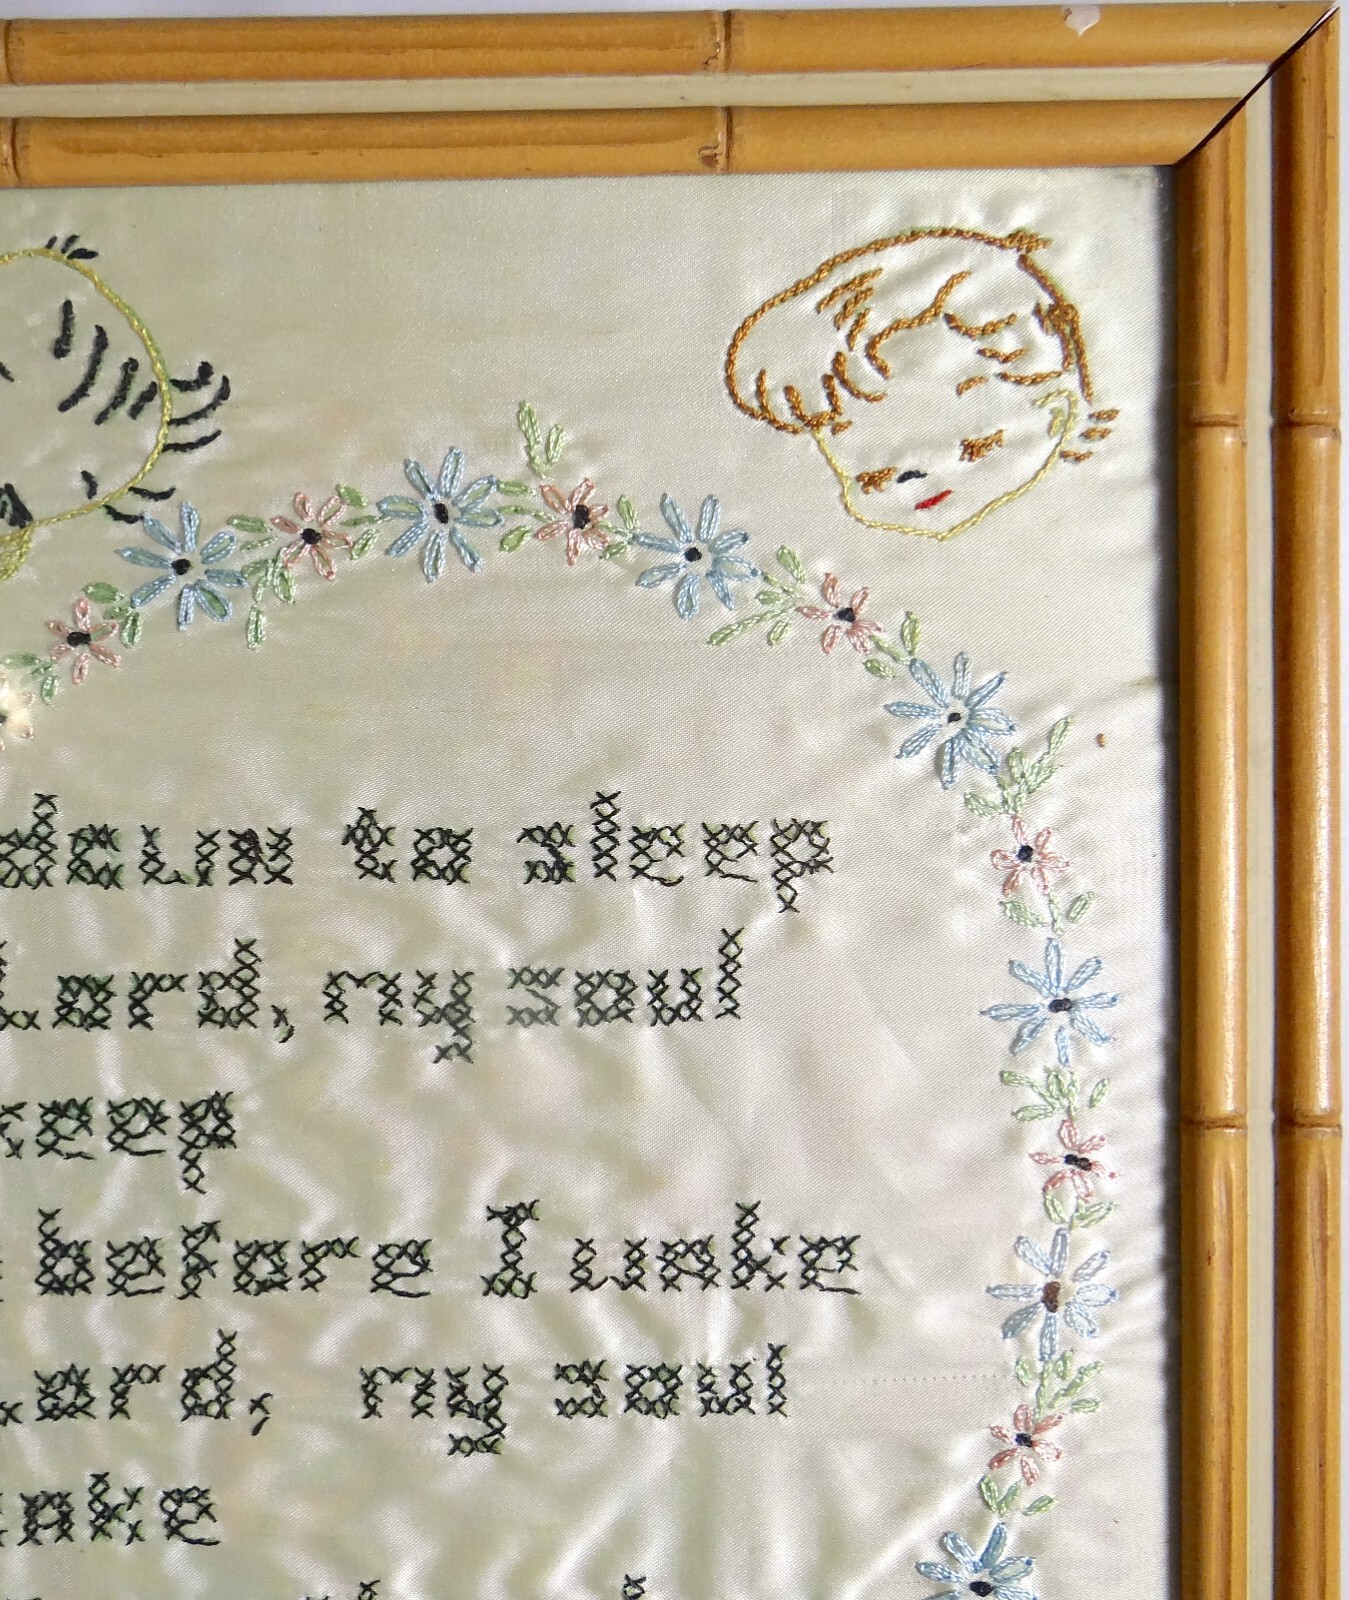 down to sleep
Lord, my soul
keep
before I wake
Lord, my soul
take